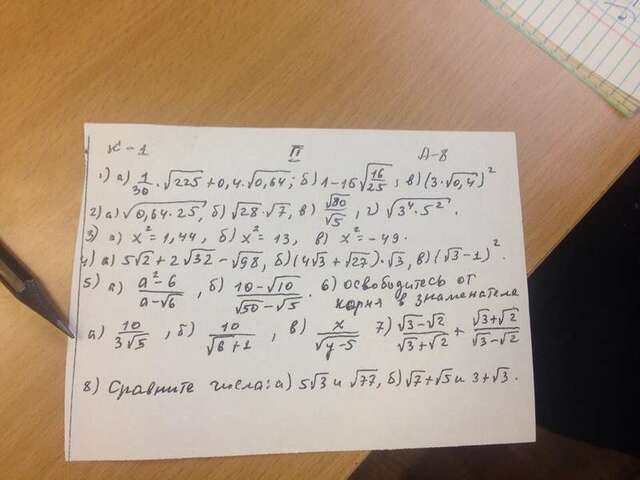 К-1 II А-8
1) а) 1/30 · √225 + 0,4 · √0,64; б) 1-16√16/25; в) (3·√0,4)²
2) а) √0,64·25, б) √28·√7, в) √80/√5, г) √3⁴·5².
3) а) x²=1,44, б) x²=13, в) x²=-49.
4) а) 5√2+2√32-√98, б) (4√3+√27)·√3, в) (√3-1)².
5) а) a²-6/a-√6, б) 10-√10/√50-√5. 6) освободитесь от
корня в знаменателе
а) 10/3√5, б) 10/√6+1, в) x/√y-5 7) √3-√2/√3+√2 + √3+√2/√3-√2
8) Сравните числа: а) 5√3 и √77, б) √7+√5 и 3+√3.